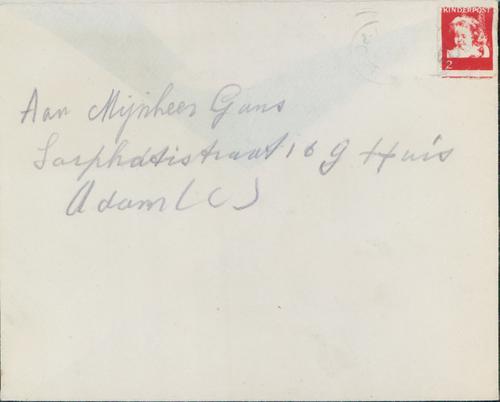 KINDERPOST
2
Aan Mijnheer Gans
Sarphatistraat 169 Huis
Adam (C)